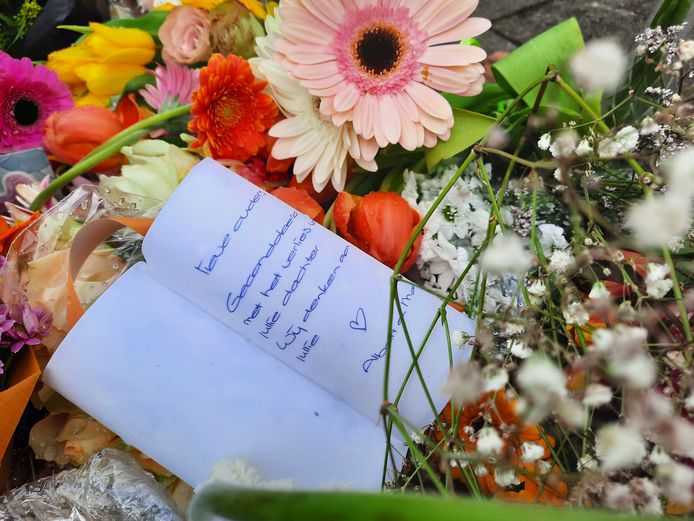 lieve ouders
Gecondoleerd
met het verlies v
jullie dochter
Wij denken aan
jullie